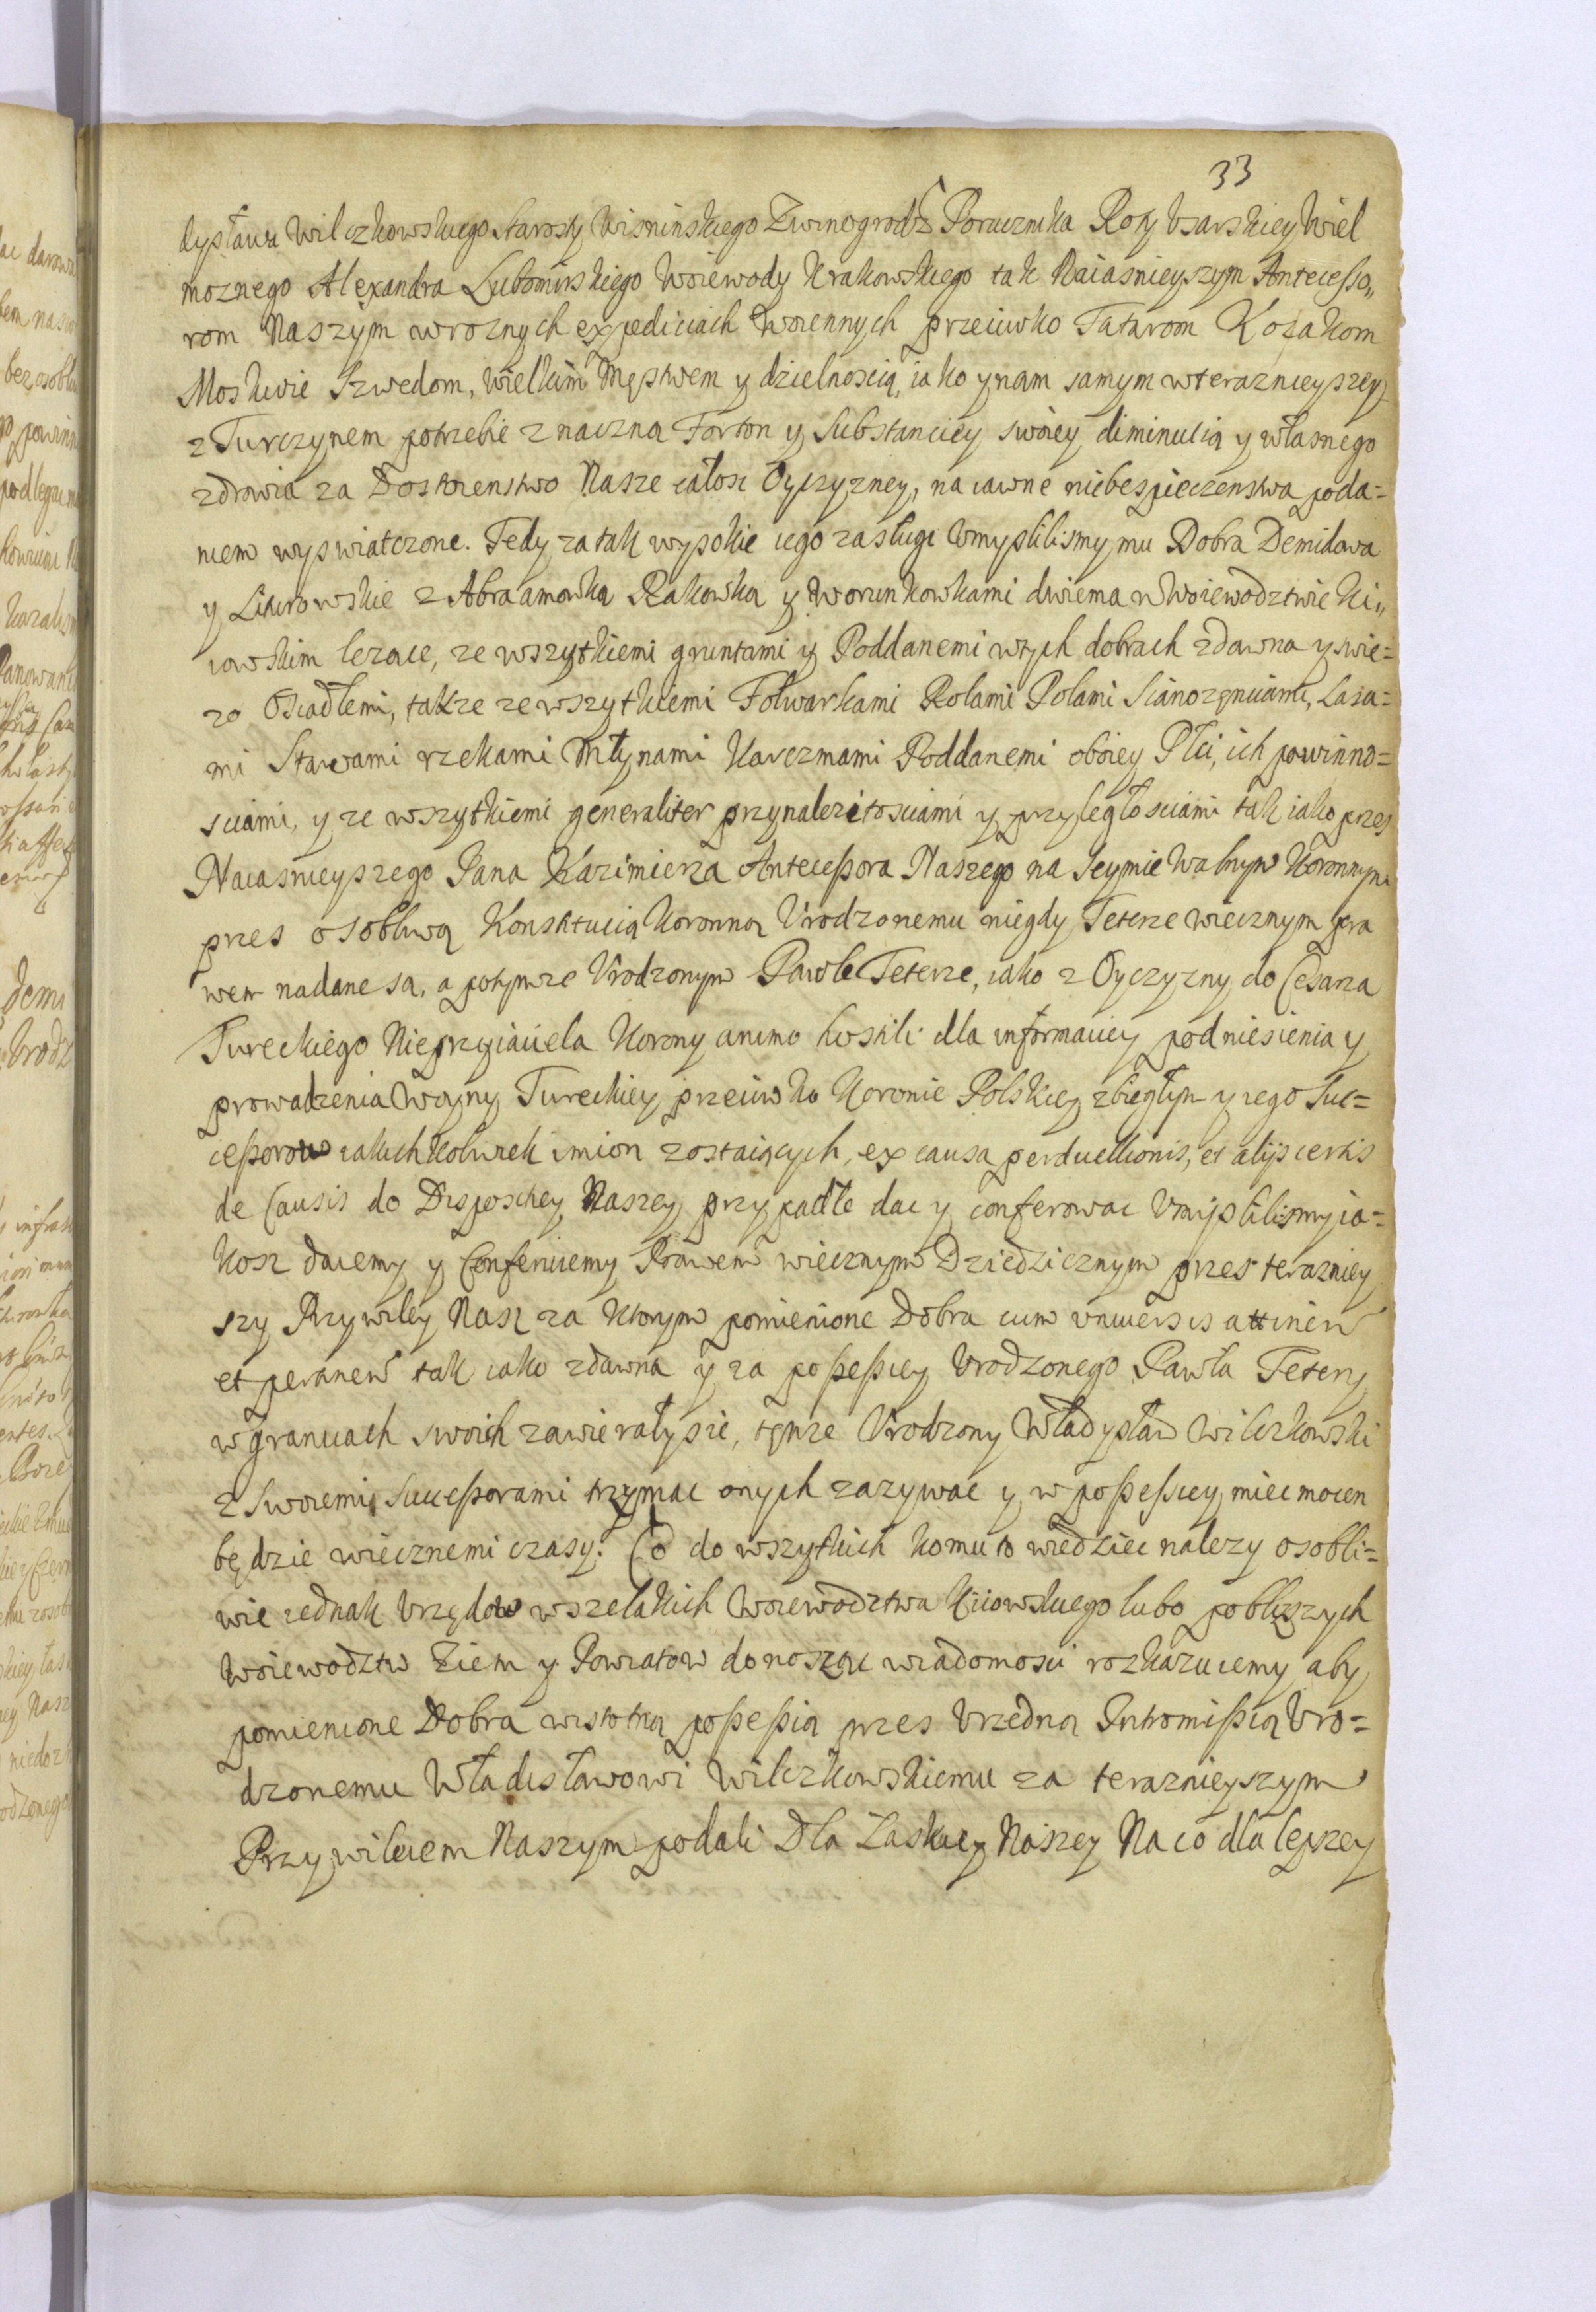 33
dysława Wilczkowskiego Starosty Wisninskiego Zwinogrodz Porucznika Roty Usarskiey Wiel
moznego Alexandra Lubomirskiego Woiewody Krakowskiego tak Naiasnieyszym Antecesso„
rom Naszym w roznych expediciach woiennych przeciwko Tatarom Kozakom
Moskwie Szwedom, wielkim Męstwem y dzielnoscią, iako y nam samym w teraznieyszey
z Turczynem potrzebie znaczną Forton y Substanciey swoiey diminutią y własnego
zdrowia za Dostoienstwo Nasze całosc Oyczyzney, na iawne niebespieczenstwa poda=
niem wyswiatczone. Tedy za tak wysokie iego zasługi Umyslilismy mu Dobra Demidowa
y Licurowskie z Abraamowką Rakowką y Worunkowkami dwiema w Woiewodztwie Ki„
iowskim lezace, ze wszytkiemi gruntami y Poddanemi w tych dobrach zdawna y swie=
zo Osiadłemi, takze ze wszytkiemi Folwarkami Rolami Polami Sianozęnciami, Lasa=
mi Stawami rzekami Młynami Karczmami Poddanemi oboiey Płci, ich powinno=
sciami, y ze wszytkiemi generaliter przynalezitosciami y przyległosciami tak iako przes
Naiasnieyszego Pana Kazimierza Antecessora Naszego na Seymie Walnym Koronnym
przes osobliwą Konstitucią Koronną Urodzonemu niegdy Teterze wiecznym pra
wem nadane są, a potym ze Urodzonym Pawle Teterze, iako z Oyczyzny do Cesarza
Tureckiego Nieprzyiaciela Korony animo hostili dla informaciey podniesienia y
prowadzenia Woyny Tureckiey przeciwko Koronie Polskiey zbiegłym y iego Suc=
cessorow iakichkolwiek imion zostaiących, ex causa perduellionis, et alijs certis
de Causis do Disposiciey Naszey przypadłe dac y conferowac Umyslilismy ia=
kosz daiemy y Conferuiemy Prawem wiecznym Dziedzicznym przes terazniey
szy Przywiley Nasz za ktorym pomienione Dobra cum universis attinen
et pertinen tak iako zdawna y za possessiey Urodzonego Pawła Tetery
w granicach swoich zawierały sie, tęnze Urodzony Władysław Wilczkowski
z Swoiemi Successorami trzymac onych zazywac y w possessiey miec mocen
będzie wiecznemi czasy. Co do wszytkich komu to wiedziec nalezy osobli=
wie iednak Urzędow wszelakich Woiewodztwa Kiiowskiego lubo poblizszych
Woiewodztw Ziem y Powiatow donosząc wiadomosci rozkazuiemy aby
pomienione Dobra w istotną possessią przes Urzedną Intromissią Uro=
dzonemu Władisławowi Wilczkowskiemu za teraznieyszym
Przywileiem Naszym podali Dla Łaskiey Naszey Na co dla lepszey